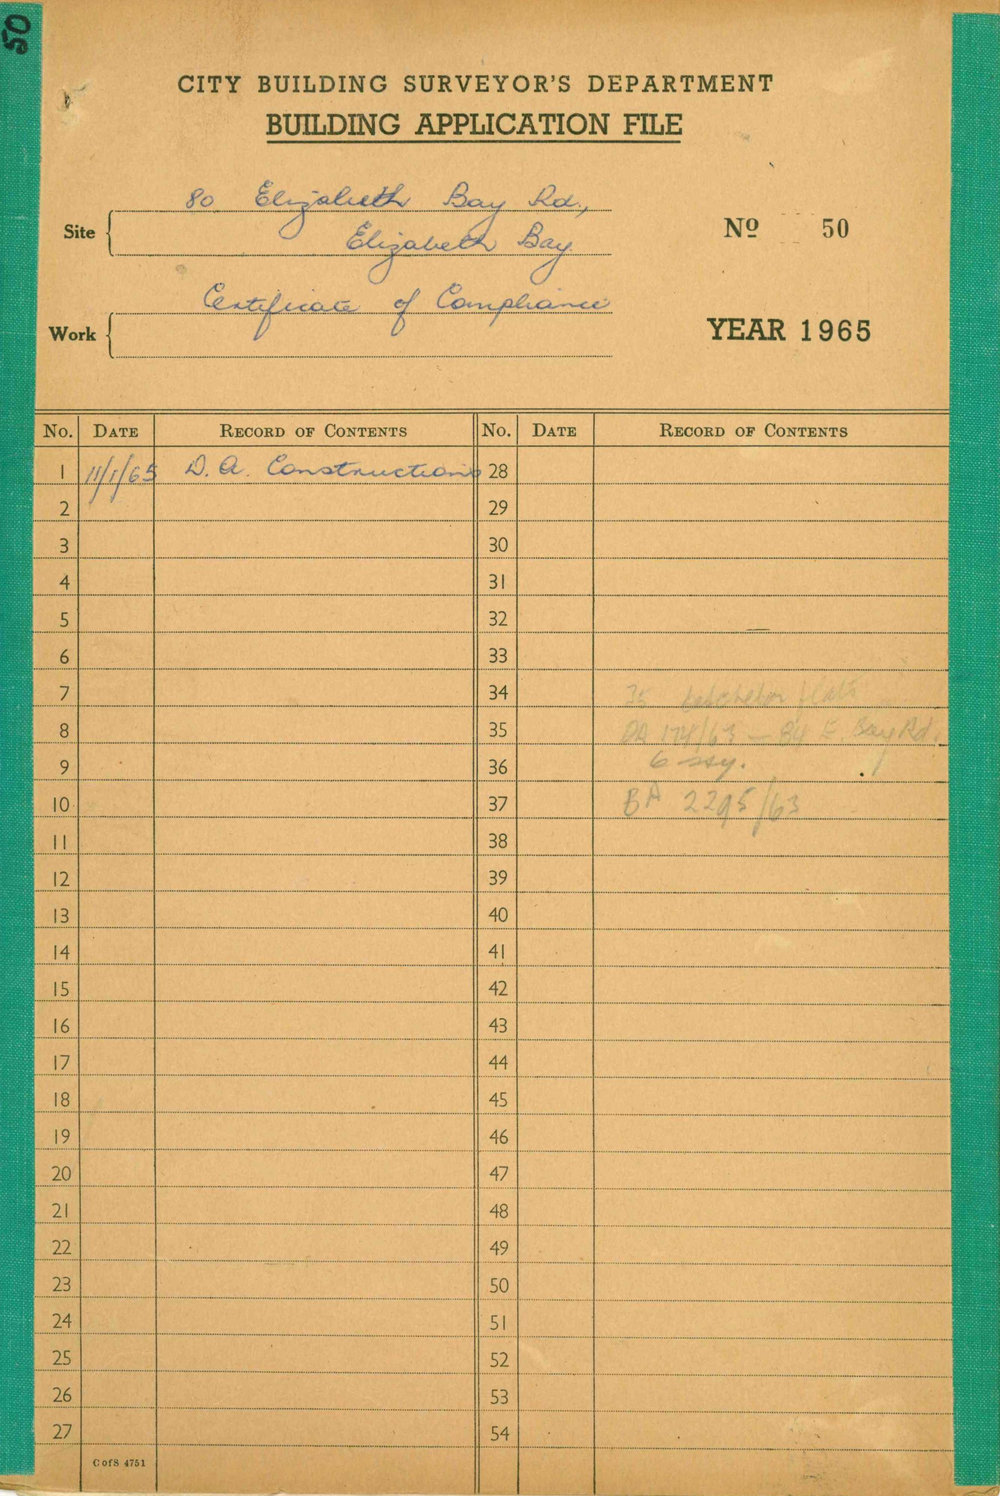 50
CITY BUILDING SURVEYOR'S DEPARTMENT
BUILDING APPLICATION FILE
80 Elizabeth Bay Rd.,
Site
Elizabeth Bay
Nº 50
Certificate of Compliance
Work
YEAR 1965
No. DATE RECORD OF CONTENTS No. DATE RECORD OF CONTENTS
1 11/1/65 D. A. Constructions 28
2 29
3 30
4 31
5 32
6 33
7 34 flats
8 35 DA 174/63 — 84 E. Bay Rd.
9 36 6 sty.
10 37 BA 2295/63
11 38
12 39
13 40
14 41
15 42
16 43
17 44
18 45
19 46
20 47
21 48
22 49
23 50
24 51
25 52
26 53
27 54
C of S 4751